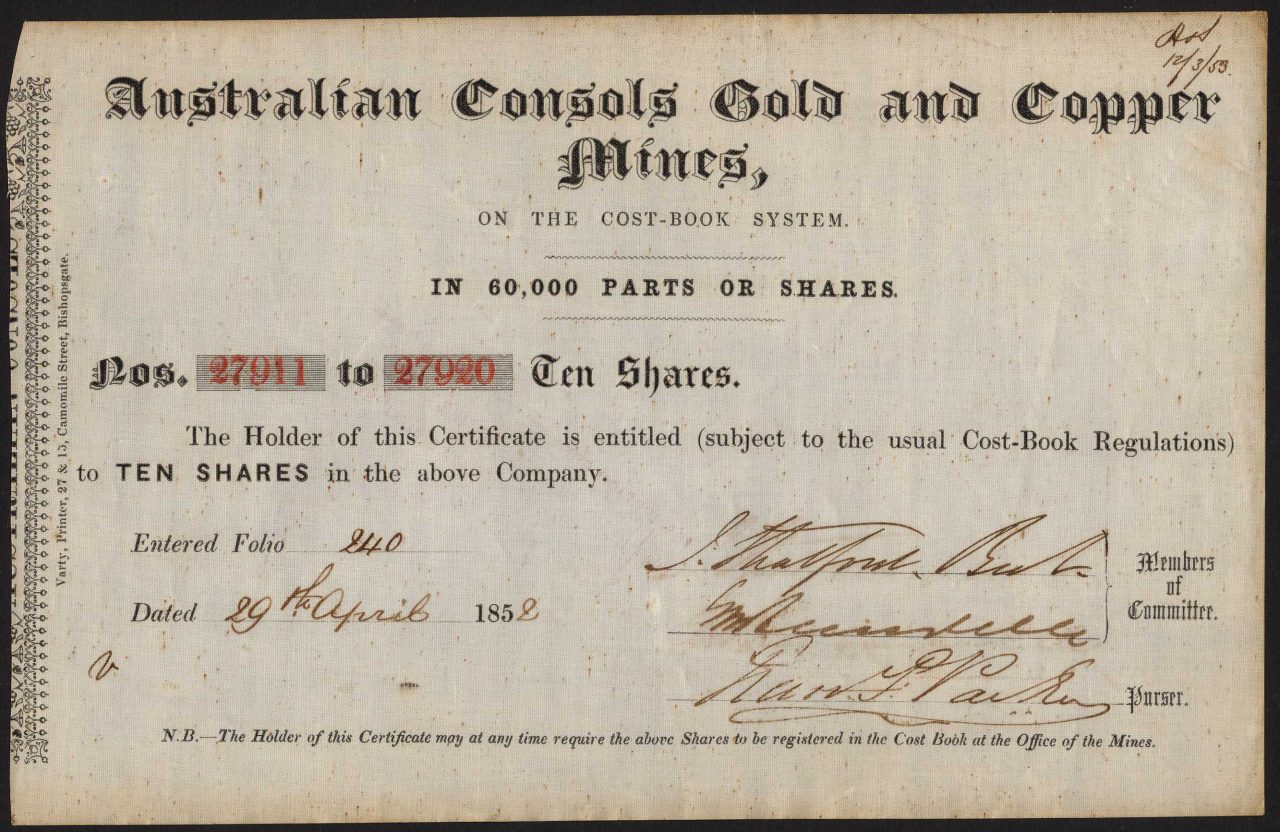 12/3/53.
Australian Consols Gold and Copper
Mines,
ON THE COST-BOOK SYSTEM.
IN 60,000 PARTS OR SHARES.
Nos. 27911 to 27920 Ten Shares.
The Holder of this Certificate is entitled (subject to the usual Cost-Book Regulations)
to TEN SHARES in the above Company.
Entered Folio 240
Dated 29th April 1852
Members
of
Committee.
F. Parker
Purser.
v
N.B.—The Holder of this Certificate may at any time require the above Shares to be registered in the Cost Book at the Office of the Mines.
Varty, Printer, 27 & 15, Camomile Street, Bishopsgate.